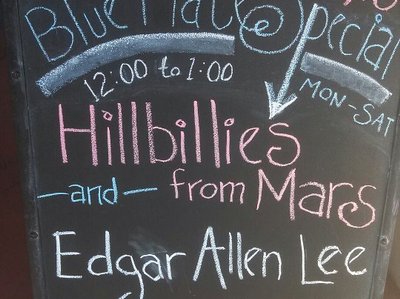 Blue Plate Special
12:00 to 1:00
MON-SAT
Hillbillies
-and- from Mars
Edgar Allen Lee